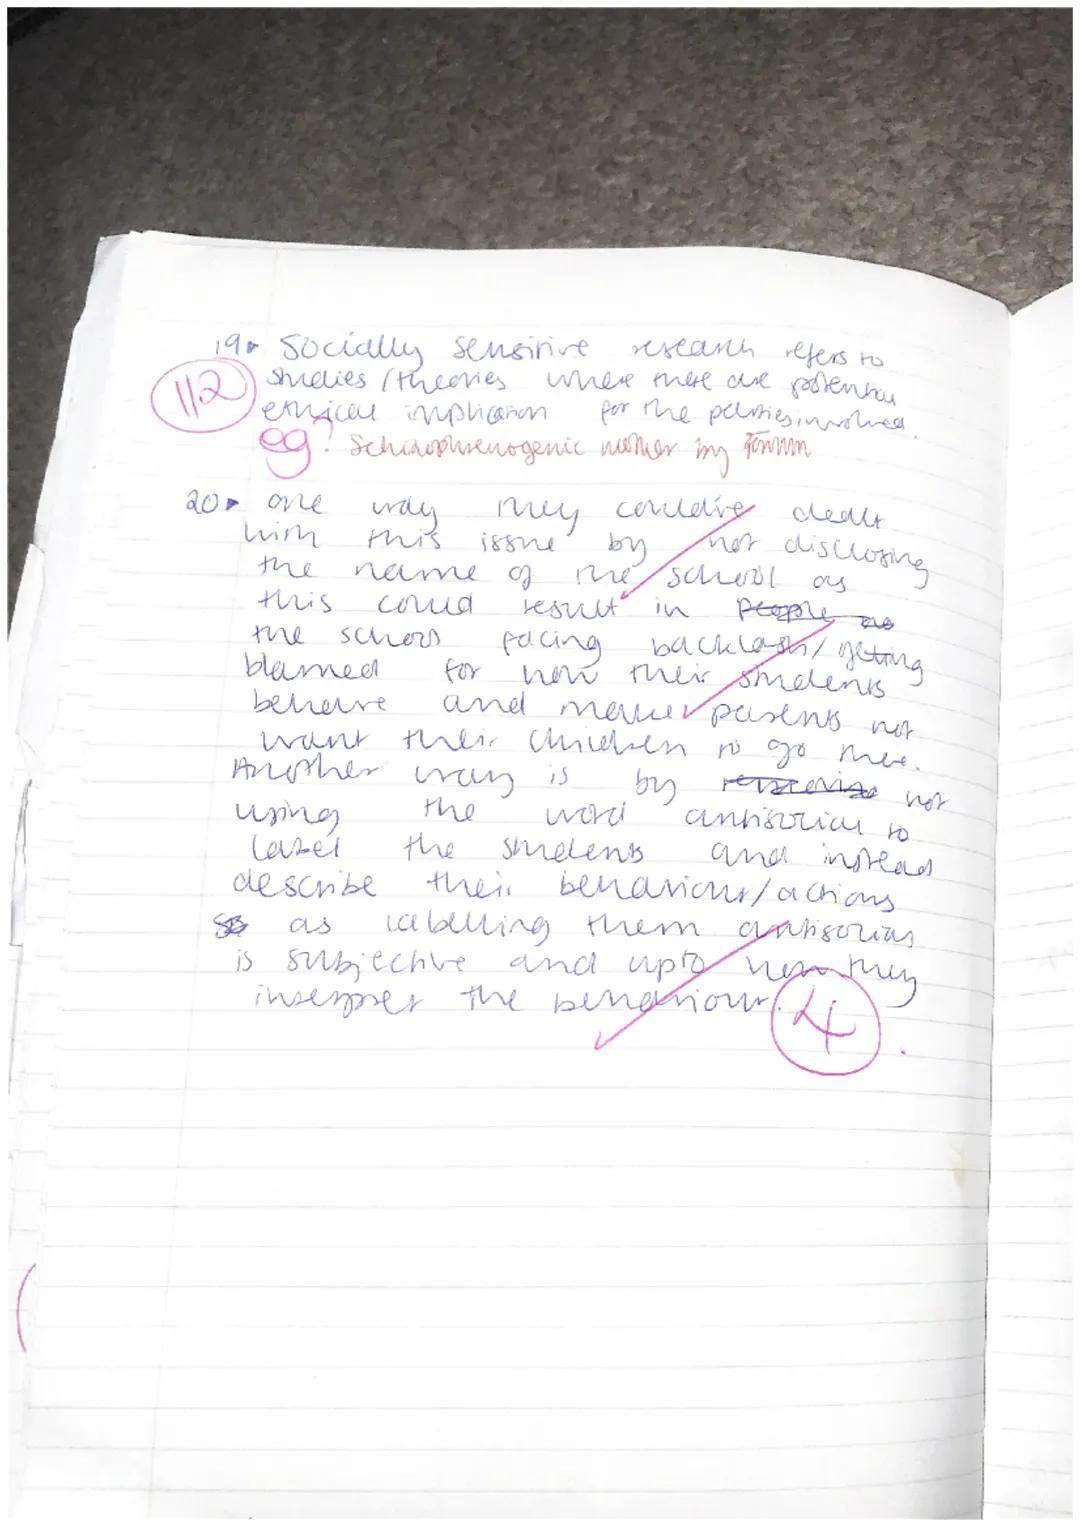 19. Socially sensitive research refers to
1/2 studies / theories where there are potential
ethical implication for the parties involved.
eg? Schizophrenogenic mother by Fromm
20. One way they could've dealt
with this issue by not disclosing
the name of the school as
this could result in people as
the school facing backlash / getting
blamed for how their students
behave and make parents not
want their children to go there.
Another way is by removing not
using the word antisocial to
label the students and instead
describe their behaviour / actions
so as labelling them antisocial
is subjective and upto how they
interpret the behaviour. 4